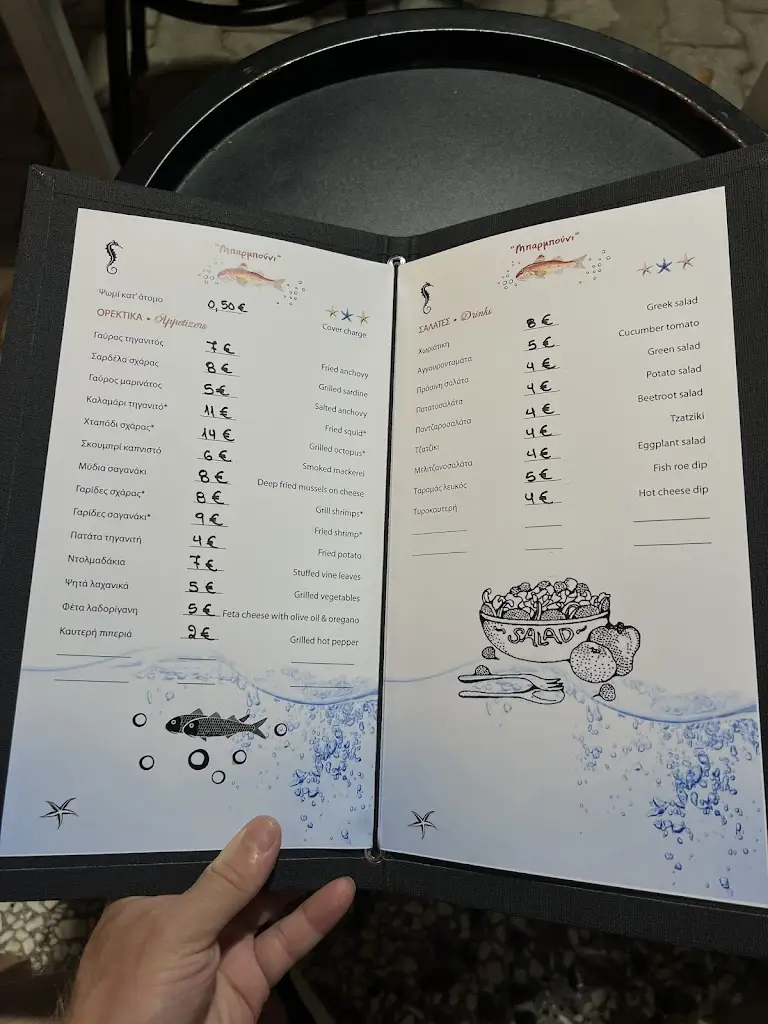 "Μπαρμπούνι"
Ψωμί κατ' άτομο 0,50€ Cover charge
ΟΡΕΚΤΙΚΑ • Appetizers
Γαύρος τηγανιτός 7€ Fried anchovy
Σαρδέλα σχάρας 8€ Grilled sardine
Γαύρος μαρινάτος 5€ Salted anchovy
Καλαμάρι τηγανιτό* 11€ Fried squid*
Χταπόδι σχάρας* 14€ Grilled octopus*
Σκουμπρί καπνιστό 6€ Smoked mackerel
Μύδια σαγανάκι 8€ Deep fried mussels on cheese
Γαρίδες σχάρας* 8€ Grill shrimps*
Γαρίδες σαγανάκι* 9€ Fried shrimp*
Πατάτα τηγανιτή 4€ Fried potato
Ντολμαδάκια 7€ Stuffed vine leaves
Ψητά λαχανικά 5€ Grilled vegetables
Φέτα λαδορίγανη 5€ Feta cheese with olive oil & oregano
Καυτερή πιπεριά 2€ Grilled hot pepper
"Μπαρμπούνι"
ΣΑΛΑΤΕΣ • Drinks
Χωριάτικη 8€ Greek salad
Αγγουροντομάτα 5€ Cucumber tomato
Πράσινη σαλάτα 4€ Green salad
Πατατοσαλάτα 4€ Potato salad
Παντζαροσαλάτα 4€ Beetroot salad
Τζατζίκι 4€ Tzatziki
Μελιτζανοσαλάτα 4€ Eggplant salad
Ταραμάς λευκός 5€ Fish roe dip
Τυροκαυτερή 4€ Hot cheese dip
SALAD